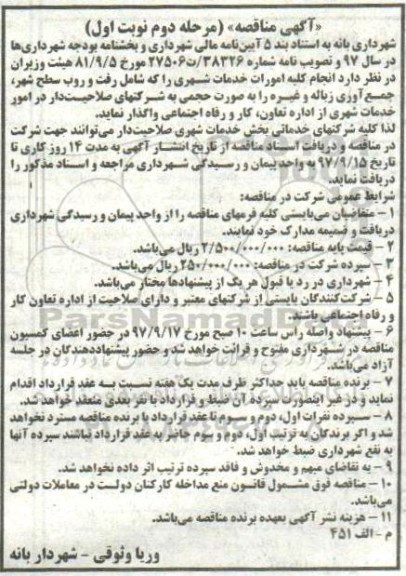 «آگهی مناقصه» (مرحله دوم نوبت اول)
شهرداری بانه به استناد بند ۵ آیین‌نامه مالی شهرداری و بخشنامه بودجه شهرداری‌ها
در سال ۹۷ و تصویب نامه شماره ۳۸۳۲۶/ت۲۷۵۰۶ مورخ ۸۱/۹/۵ هیئت وزیران
در نظر دارد انجام کلیه امورات خدمات شهری را که شامل رفت و روب سطح شهر،
جمع‌آوری زباله و غیره را به صورت حجمی به شرکتهای صلاحیت‌دار در امور
خدمات شهری از اداره تعاون، کار و رفاه اجتماعی واگذار نماید.
لذا کلیه شرکتهای خدماتی بخش خدمات شهری صلاحیت‌دار می‌توانند جهت شرکت
در مناقصه و دریافت اسناد مناقصه از تاریخ انتشار آگهی به مدت ۱۴ روز کاری تا
تاریخ ۹۷/۹/۱۵ به واحد پیمان و رسیدگی شهرداری مراجعه و اسناد مذکور را
دریافت نمایند.
شرایط عمومی شرکت در مناقصه:
۱ – متقاضیان می‌بایستی کلیه فرمهای مناقصه را از واحد پیمان و رسیدگی شهرداری
دریافت و ضمیمه مدارک خود نمایند.
۲ – قیمت پایه مناقصه: ۲/۵۰۰/۰۰۰/۰۰۰ ریال می‌باشد.
۳ – سپرده شرکت در مناقصه: ۲۵۰/۰۰۰/۰۰۰ ریال می‌باشد.
۴ – شهرداری در رد یا قبول هر یک از پیشنهادها مختار می‌باشد.
۵ – شرکت‌کنندگان بایستی از شرکتهای معتبر و دارای صلاحیت از اداره تعاون کار
و رفاه اجتماعی باشند.
۶ – پیشنهاد واصله راس ساعت ۱۰ صبح مورخ ۹۷/۹/۱۷ در حضور اعضای کمسیون
مناقصه در شهرداری مفتوح و قرائت خواهد شد و حضور پیشنهاددهندگان در جلسه
آزاد می‌باشد.
۷ – برنده مناقصه باید حداکثر ظرف مدت یک هفته نسبت به عقد قرارداد اقدام
نماید و در غیر اینصورت سپرده آن ضبط و قرارداد با نفر بعدی منعقد خواهد شد.
۸ – سپرده نفرات اول، دوم و سوم تا عقد قرارداد با برنده مناقصه مسترد نخواهد
شد و اگر برندگان به ترتیب اول، دوم و سوم حاضر به عقد قرارداد نباشند سپرده آنها
به نفع شهرداری ضبط خواهد شد.
۹ – به تقاضای مبهم و مخدوش و فاقد سپرده ترتیب اثر داده نخواهد شد.
۱۰ – مناقصه فوق مشمول قانون منع مداخله کارکنان دولت در معاملات دولتی
می‌باشد.
۱۱ – هزینه نشر آگهی بعهده برنده مناقصه می‌باشد.
م – الف ۴۵۱
وریا وثوقی – شهردار بانه
ParsNamadData